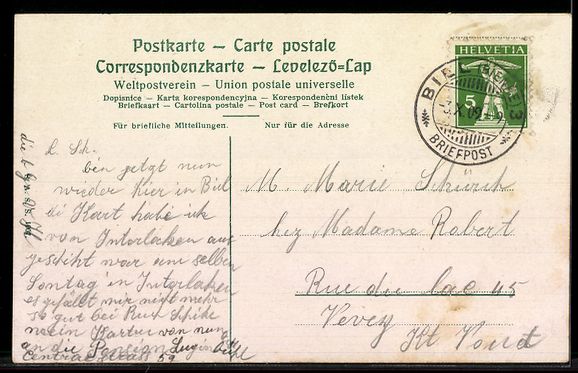 Postkarte – Carte postale
Correspondenzkarte – Levelező=Lap
Weltpostverein – Union postale universelle
Dopisnice – Karta korespondencyjna – Korespondenční lístek
Briefkaart – Cartolina postale – Post card – Brefkort
Für briefliche Mitteilungen.
Nur für die Adresse
HELVETIA
5
BIEL (BIENNE) 3
BRIEFPOST
L. Sch.
bin getzt nun
wieder hier in Biel
di Kart habe ich
von Interlaken aus
geschikt war am selben
Sontag in Interlaken
es gefällt mir nicht mehr
so gut bei
Karten von nun
an die Pension
Centralstrass 59
M. Marie Schürch
chez Madame Robert
Rue du lac 45
Vevey
Kt Vaud